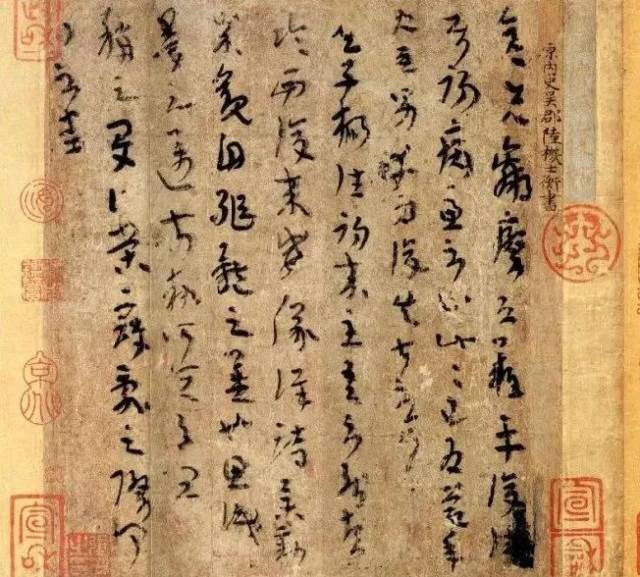 晉內史吳郡陸機士衡書
彥先羸瘵恐難平復往屬
初病慮不止此此已為慶承
使唯男幸為復失前憂耳
子楊往初來主吾不能盡
臨西復來威儀詳跱舉動
成觀自軀體之美也思識
量之邁前執所恒有宜
稱之夏伯榮寇亂之際聞
問不悉
宣和